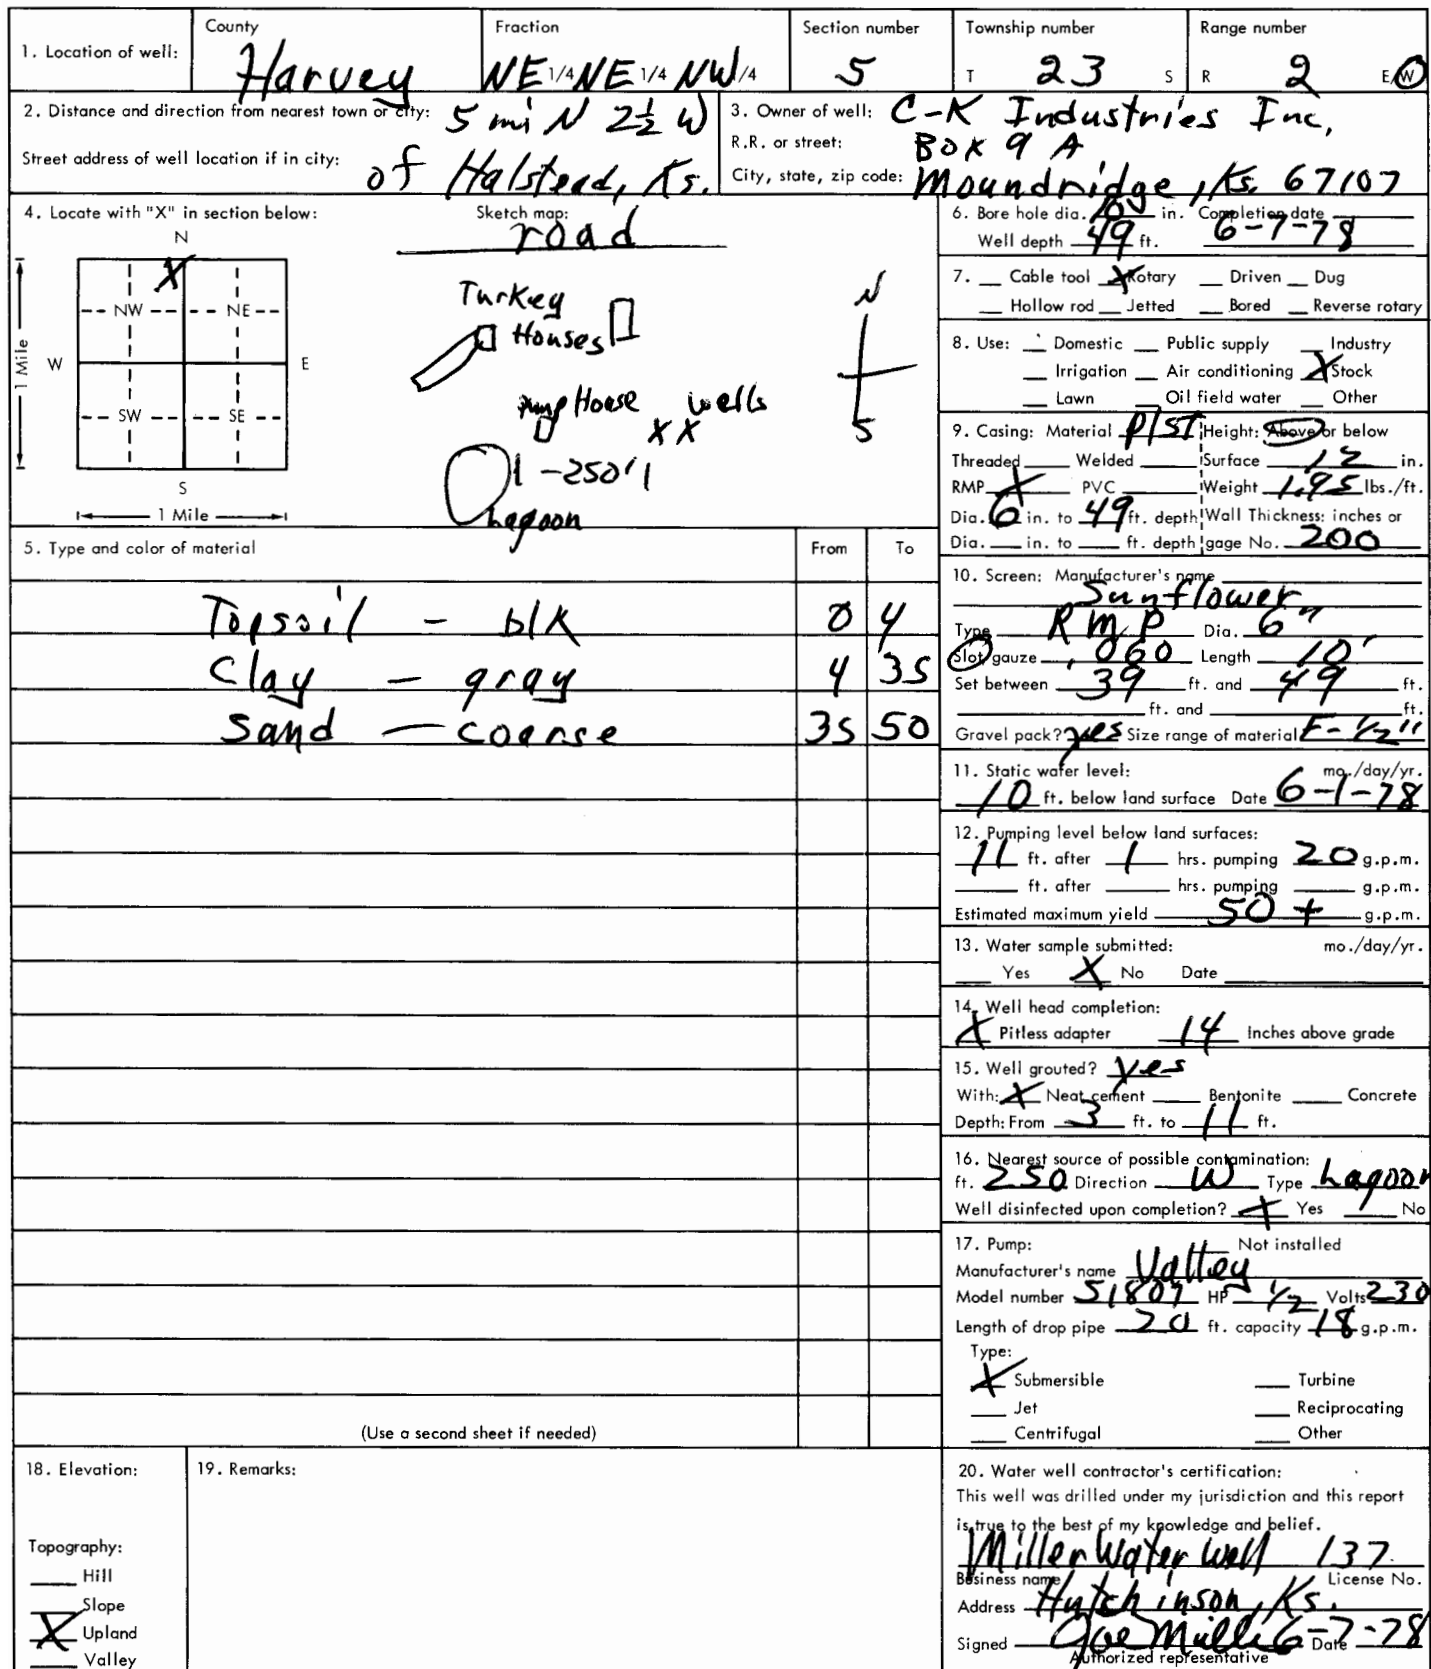 1. Location of well: County Harvey Fraction NE 1/4 NE 1/4 NW /4 Section number 5 Township number T 23 S Range number R 2 E/W
2. Distance and direction from nearest town or city: 5 mi N 2½ W
Street address of well location if in city: of Halstead, Ks.
3. Owner of well: C-K Industries Inc.
R.R. or street: Box 9 A
City, state, zip code: Moundridge, Ks. 67107
4. Locate with "X" in section below:
N
X
NW NE
W E
SW SE
S
1 Mile
1 Mile
Sketch map:
road
Turkey
Houses
N
pump House wells
X X
S
1-250'1
Lagoon
5. Type and color of material From To
Topsoil - blk 0 4
Clay - gray 4 35
Sand - coarse 35 50
(Use a second sheet if needed)
6. Bore hole dia. 10 in. Completion date
Well depth 49 ft. 6-7-78
7. Cable tool X Rotary Driven Dug
Hollow rod Jetted Bored Reverse rotary
8. Use: Domestic Public supply Industry
Irrigation Air conditioning X Stock
Lawn Oil field water Other
9. Casing: Material plst Height: Above or below
Threaded Welded Surface 12 in.
RMP X PVC Weight 1.95 lbs./ft.
Dia. 6 in. to 49 ft. depth Wall Thickness: inches or
Dia. in. to ft. depth gage No. 200
10. Screen: Manufacturer's name
Sunflower
Type RMP Dia. 6"
Slot/gauze .060 Length 10'
Set between 39 ft. and 49 ft.
ft. and ft.
Gravel pack? yes Size range of material F-1/2"
11. Static water level: mo./day/yr.
10 ft. below land surface Date 6-1-78
12. Pumping level below land surfaces:
11 ft. after 1 hrs. pumping 20 g.p.m.
ft. after hrs. pumping g.p.m.
Estimated maximum yield 50 + g.p.m.
13. Water sample submitted: mo./day/yr.
Yes X No Date
14. Well head completion:
X Pitless adapter 14 Inches above grade
15. Well grouted? yes
With: X Neat cement Bentonite Concrete
Depth: From 3 ft. to 11 ft.
16. Nearest source of possible contamination:
ft. 250 Direction W Type Lagoon
Well disinfected upon completion? X Yes No
17. Pump: Not installed
Manufacturer's name Valley
Model number S1807 HP 1/2 Volts 230
Length of drop pipe 20 ft. capacity 18 g.p.m.
Type:
X Submersible Turbine
Jet Reciprocating
Centrifugal Other
18. Elevation:
Topography:
Hill
Slope
X Upland
Valley
19. Remarks:
20. Water well contractor's certification:
This well was drilled under my jurisdiction and this report
is true to the best of my knowledge and belief.
Miller Water Well 137
Business name License No.
Address Hutchinson, Ks.
Signed Joe Miller Date 6-7-78
Authorized representative